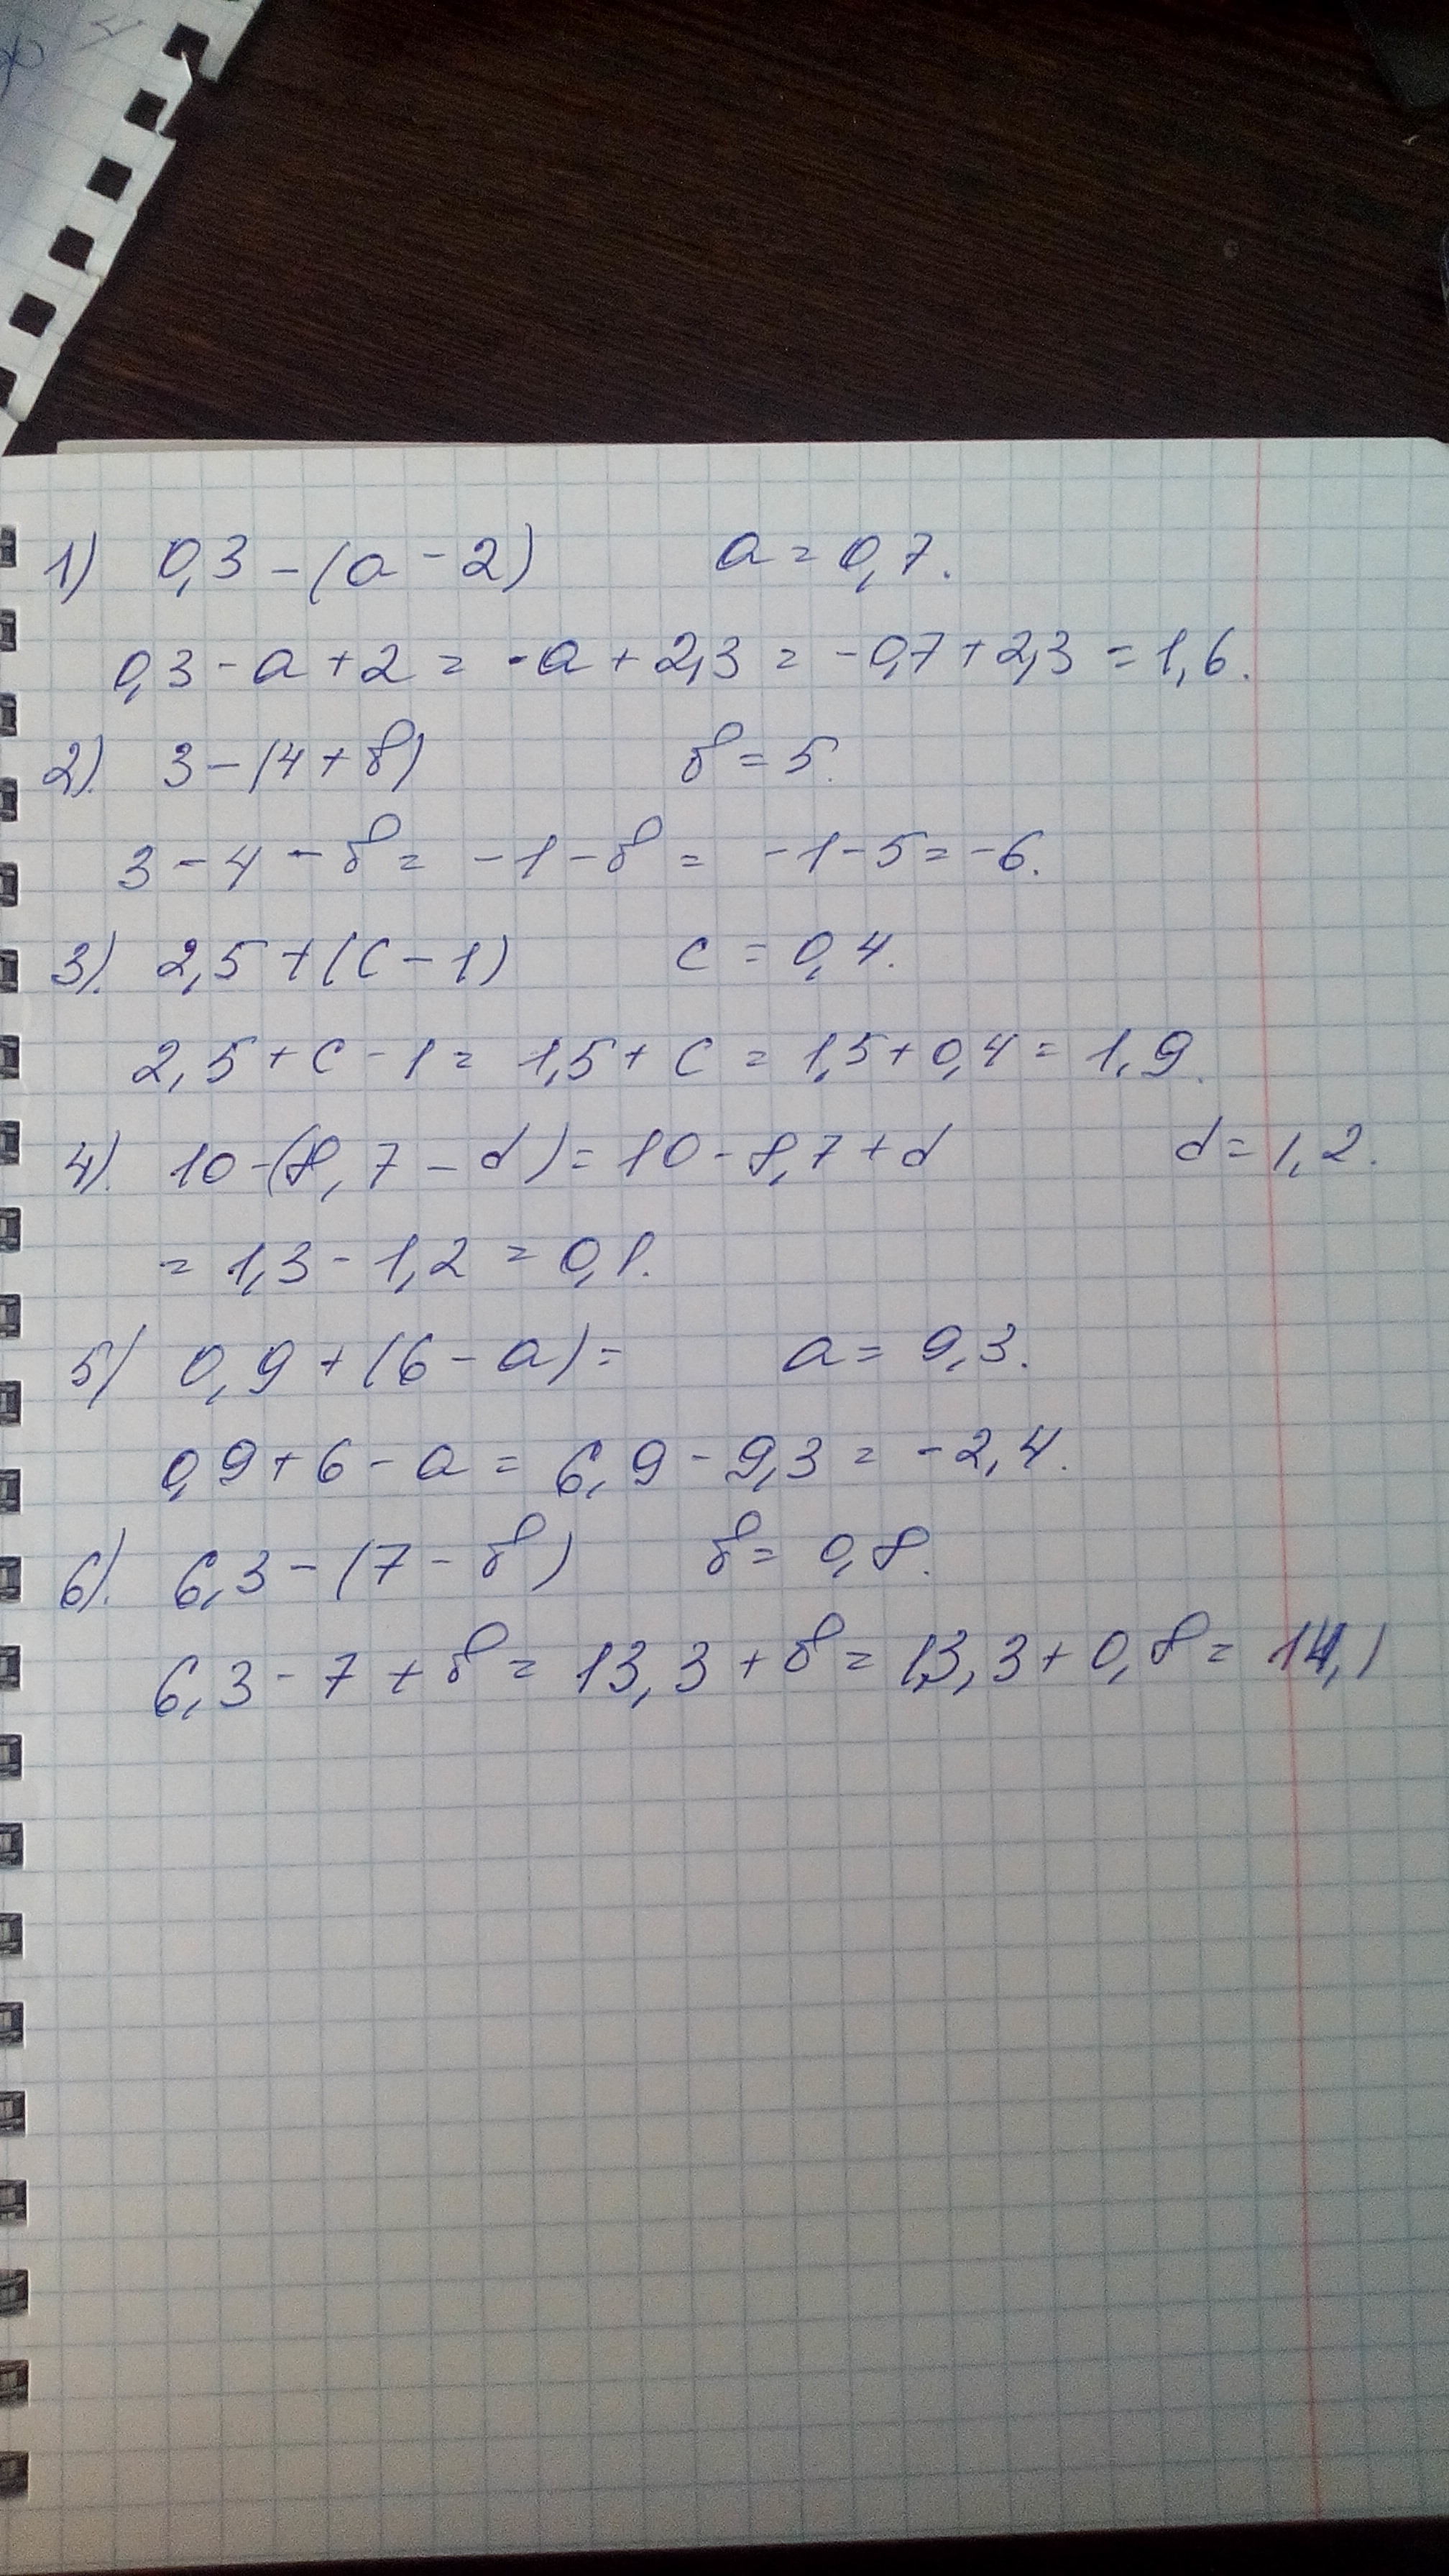 1) 0,3 - (a - 2) a = 0,7.
0,3 - a + 2 = -a + 2,3 = -0,7 + 2,3 = 1,6.
2). 3 - (4 + в) в = 5.
3 - 4 - в = -1 - в = -1 - 5 = -6.
3). 2,5 + (c - 1) c = 0,4.
2,5 + c - 1 = 1,5 + c = 1,5 + 0,4 = 1,9.
4). 10 - (8,7 - d) = 10 - 8,7 + d d = 1,2.
= 1,3 - 1,2 = 0,1.
5) 0,9 + (6 - a) = a = 9,3.
0,9 + 6 - a = 6,9 - 9,3 = -2,4.
6). 6,3 - (7 - в) в = 0,8.
6,3 - 7 + в = 13,3 + в = 13,3 + 0,8 = 14,1